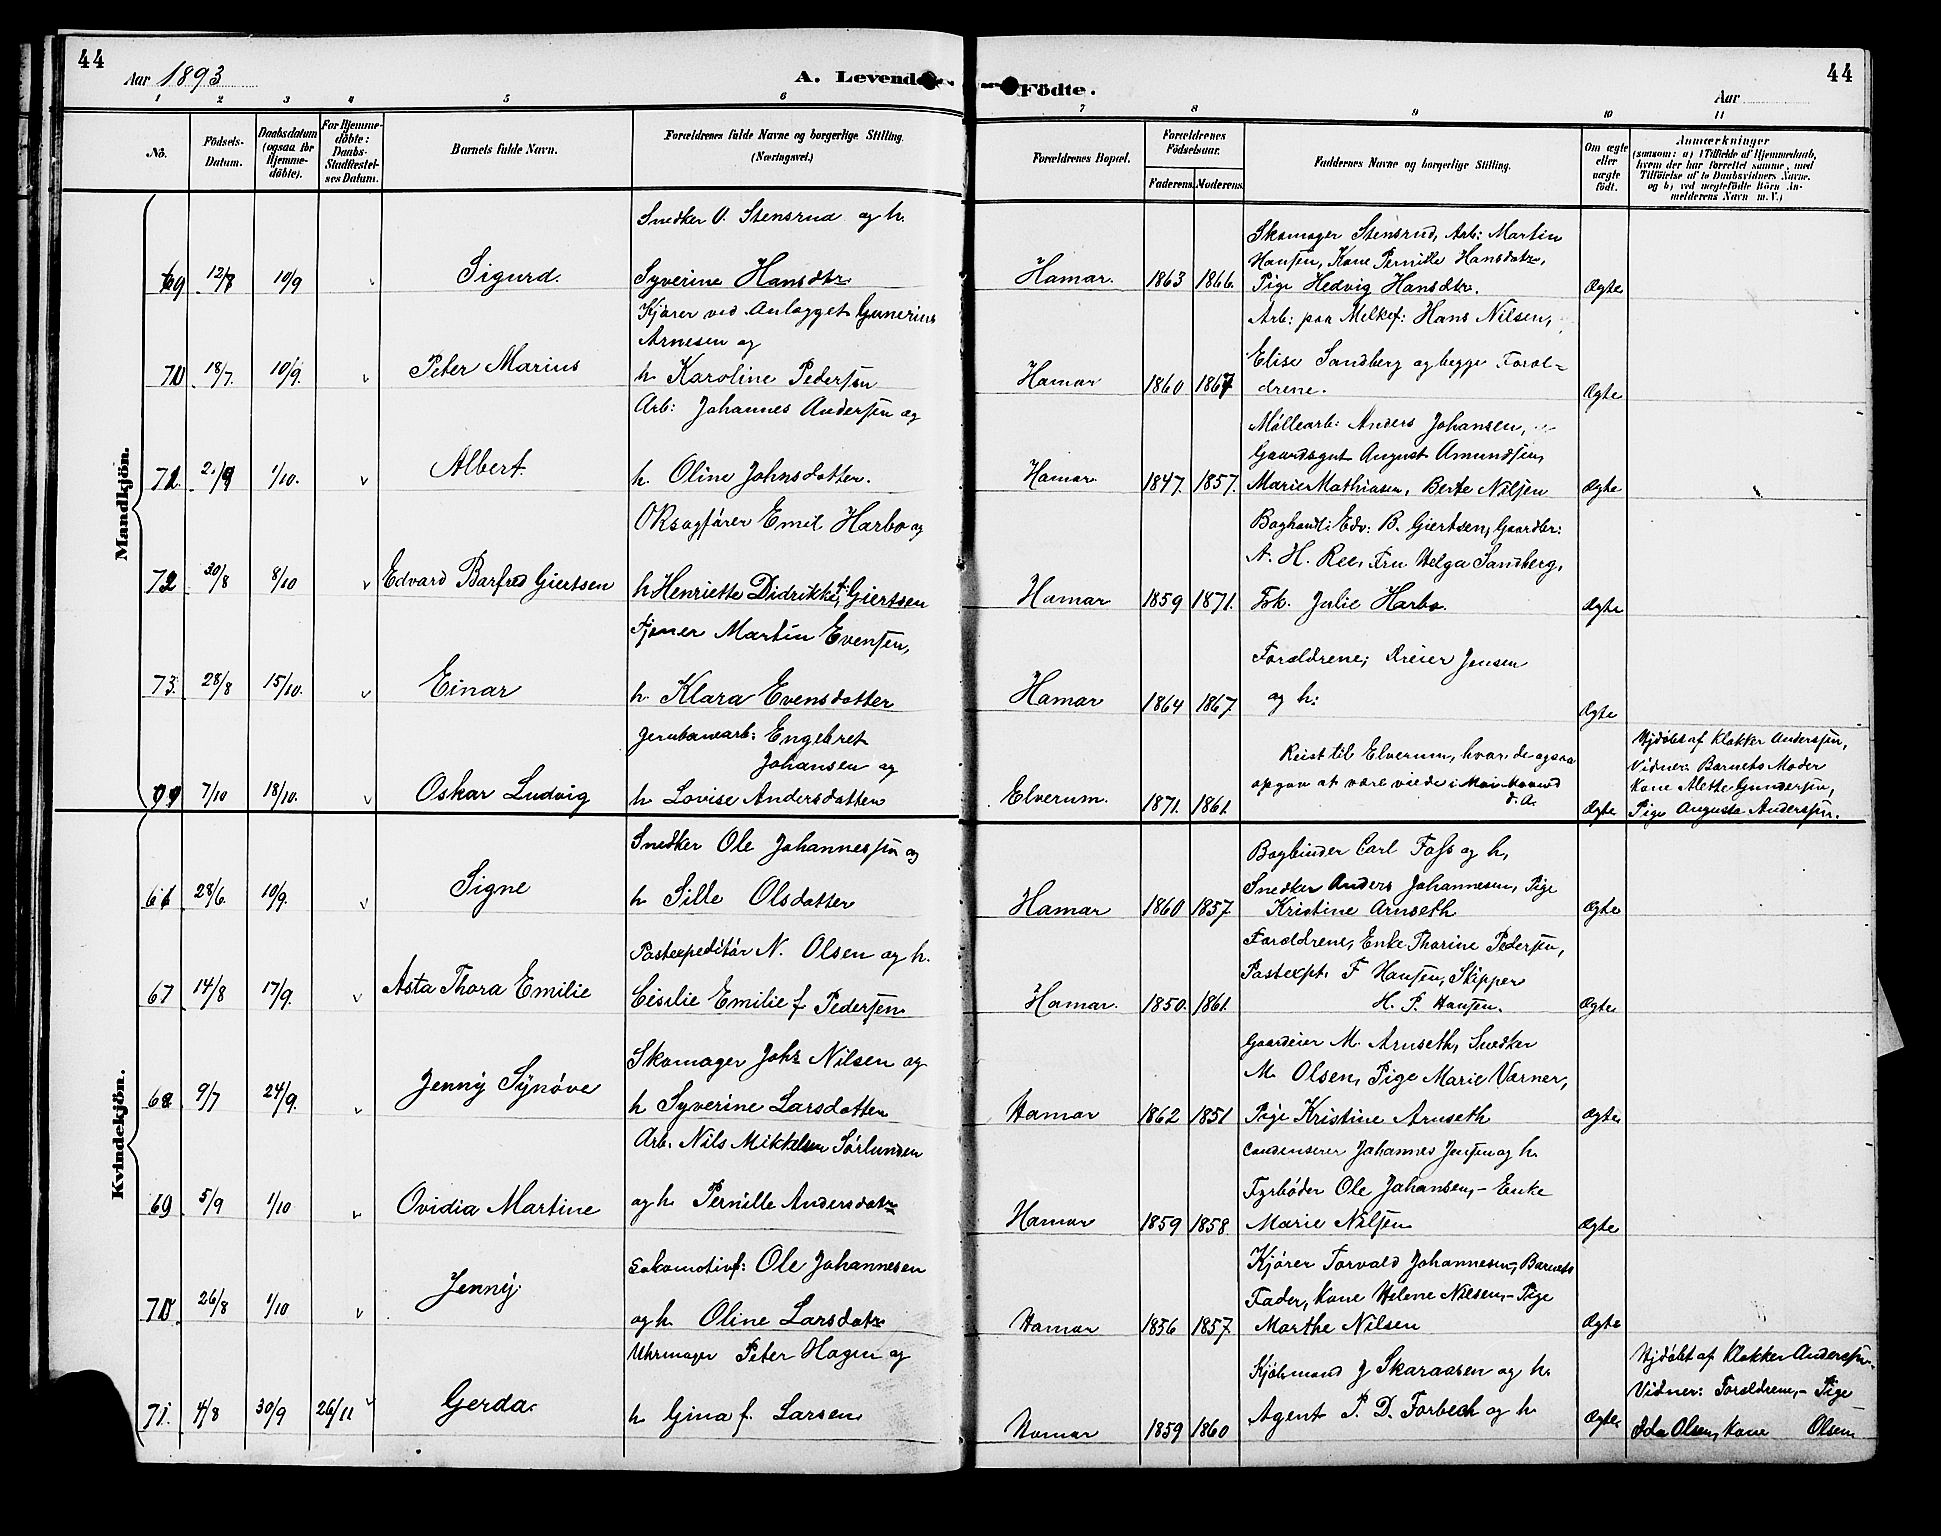 44
Aar 1893
A. Levende
1 2 3 4 5 6
No. Födsels-Datum. Daabsdatum (ogsaa for Hjemme-döbte). For Hjemme-döbte: Daabs-Stadfæstel-ses Datum. Barnets fulde Navn. Forældrenes fulde Navne og borgerlige Stilling. (Næringsvei.)
Mandkjön.
Snedker O. Stensrud og h.
69 12/8 10/9 Sigurd. Syverine Hansdtr.
Kjører ved Anlægget Gunerius
Arnesen og
70 18/7. 10/9. Peter Marius h. Karoline Pedersen
Arb: Johannes Andersen og
71. 2/9 1/10. Albert. h. Oline Johnsdatter.
ORsagfører Emil Harbo og
72 30/8 8/10 Edvard Barfred Giertsen h Henriette Didrikke f. Giertsen
Tjener Martin Evensen,
73. 28/8 15/10. Einar h. Klara Evensdatter
Jernbanearb: Engebret
Johansen og
7/10 18/10. Oskar Ludvig h. Lovise Andersdatter
Kvindekjön.
Snedker Ole Johannessen og
28/6. 10/9. Signe h Sille Olsdatter
Postexpeditör N. Olsen og h.
67 14/8 17/9. Asta Thora Emilie Cecilie Emilie f Pedersen.
Skomager Johs Nilsen og
68 9/7 24/9. Jenny Synöve h Syverine Larsdatter
Arb. Nils Mikkelsen Sörlunden
69 5/9 1/10 Ovidia Martine og h. Pernille Andersdatr
Lokomotivf: Ole Johannesen
70. 26/8 1/10 Jenny. og h. Oline Larsdatr
Uhrmager Peter Hagen og
71. 4/8 30/9 26/11 Gerda. h Gina f. Larsen
44
Födte.
Aar
7 8 9 10 11
Forældrenes Bopæl. Forældrenes Födselsaar. Faderens. Moderens. Faddernes Navne og borgerlige Stilling. Om ægte eller uægte födt. Anmærkninger (saasom: a) i Tilfælde af Hjemmedaab, hvem der har forrettet samme, med Tilföielse af to Daabsvidners Navne, og b) ved uægtefödte Börn An-melderens Navn m. V.)
Skomager Stensrud, Arb: Martin
Hansen, Kone Pernille Hansdatr,
Hamar. 1863 1866. Pige Hedvig Hansdtr. Ægte
Arb: paa Melkef: Hans Nilsen,
Elise Sandberg og begge Foræl-
Hamar 1860 1867 drene. Ægte
Möllearb: Anders Johansen,
Gaardsgut August Amundsen,
Hamar 1847. 1857. Marie Mathiasen, Berte Nilsen Ægte
Boghandl: Edv: B. Giertsen, Gaardbr:
A. H. Ree, Fru Helga Sandberg,
Hamar 1859 1871. Frk. Julie Harbo. Ægte
Forældrene; Dreier Jensen
Hamar 1864 1867 og h. Ægte
Reist til Elverum, hvor de ogsaa
opgav at være viede i Mai Maaned
d. A.
Elverum. 1871. 1861. Ægte
Hjdöbt af Klokker Anderssen,
Vidner: Barnets Moder
Kone Alethe Gundersen,
Pige Augusta Anderssen.
Bogbinder Carl Foss og h,
Snedker Anders Johannesen, Pige
Hamar 1860 1857 Kristine Arnseth Ægte
Forældrene, Enke Thorine Pedersen,
Postexpt. F Hansen, Skipper
Hamar. 1850. 1861. H. P. Hansen. Ægte
Gaardeier M. Arnseth, Snedker
M. Olsen, Pige Marie Varner,
Hamar 1862 1851 Pige Kristine Arnseth Ægte
Condenserer Johannes Jensen og h.
Fyrböder Ole Johansen, - Enke
Hamar 1859 1858. Marie Nilsen Ægte
Kjörer Torvald Johannesen, Barnets
Fader, Kone Helene Nilsen, - Pige
Hamar 1856 1857 Marthe Nilsen Ægte
Kjöbmand J Skaraasen og h.
Hamar 1859 1860 Agent P. D. Forbech og h. Ægte
Hjdöbt af Klokker Anderssen.
Vidner: Forældrene, - Pige
Ida Olsen, Kone Olsen